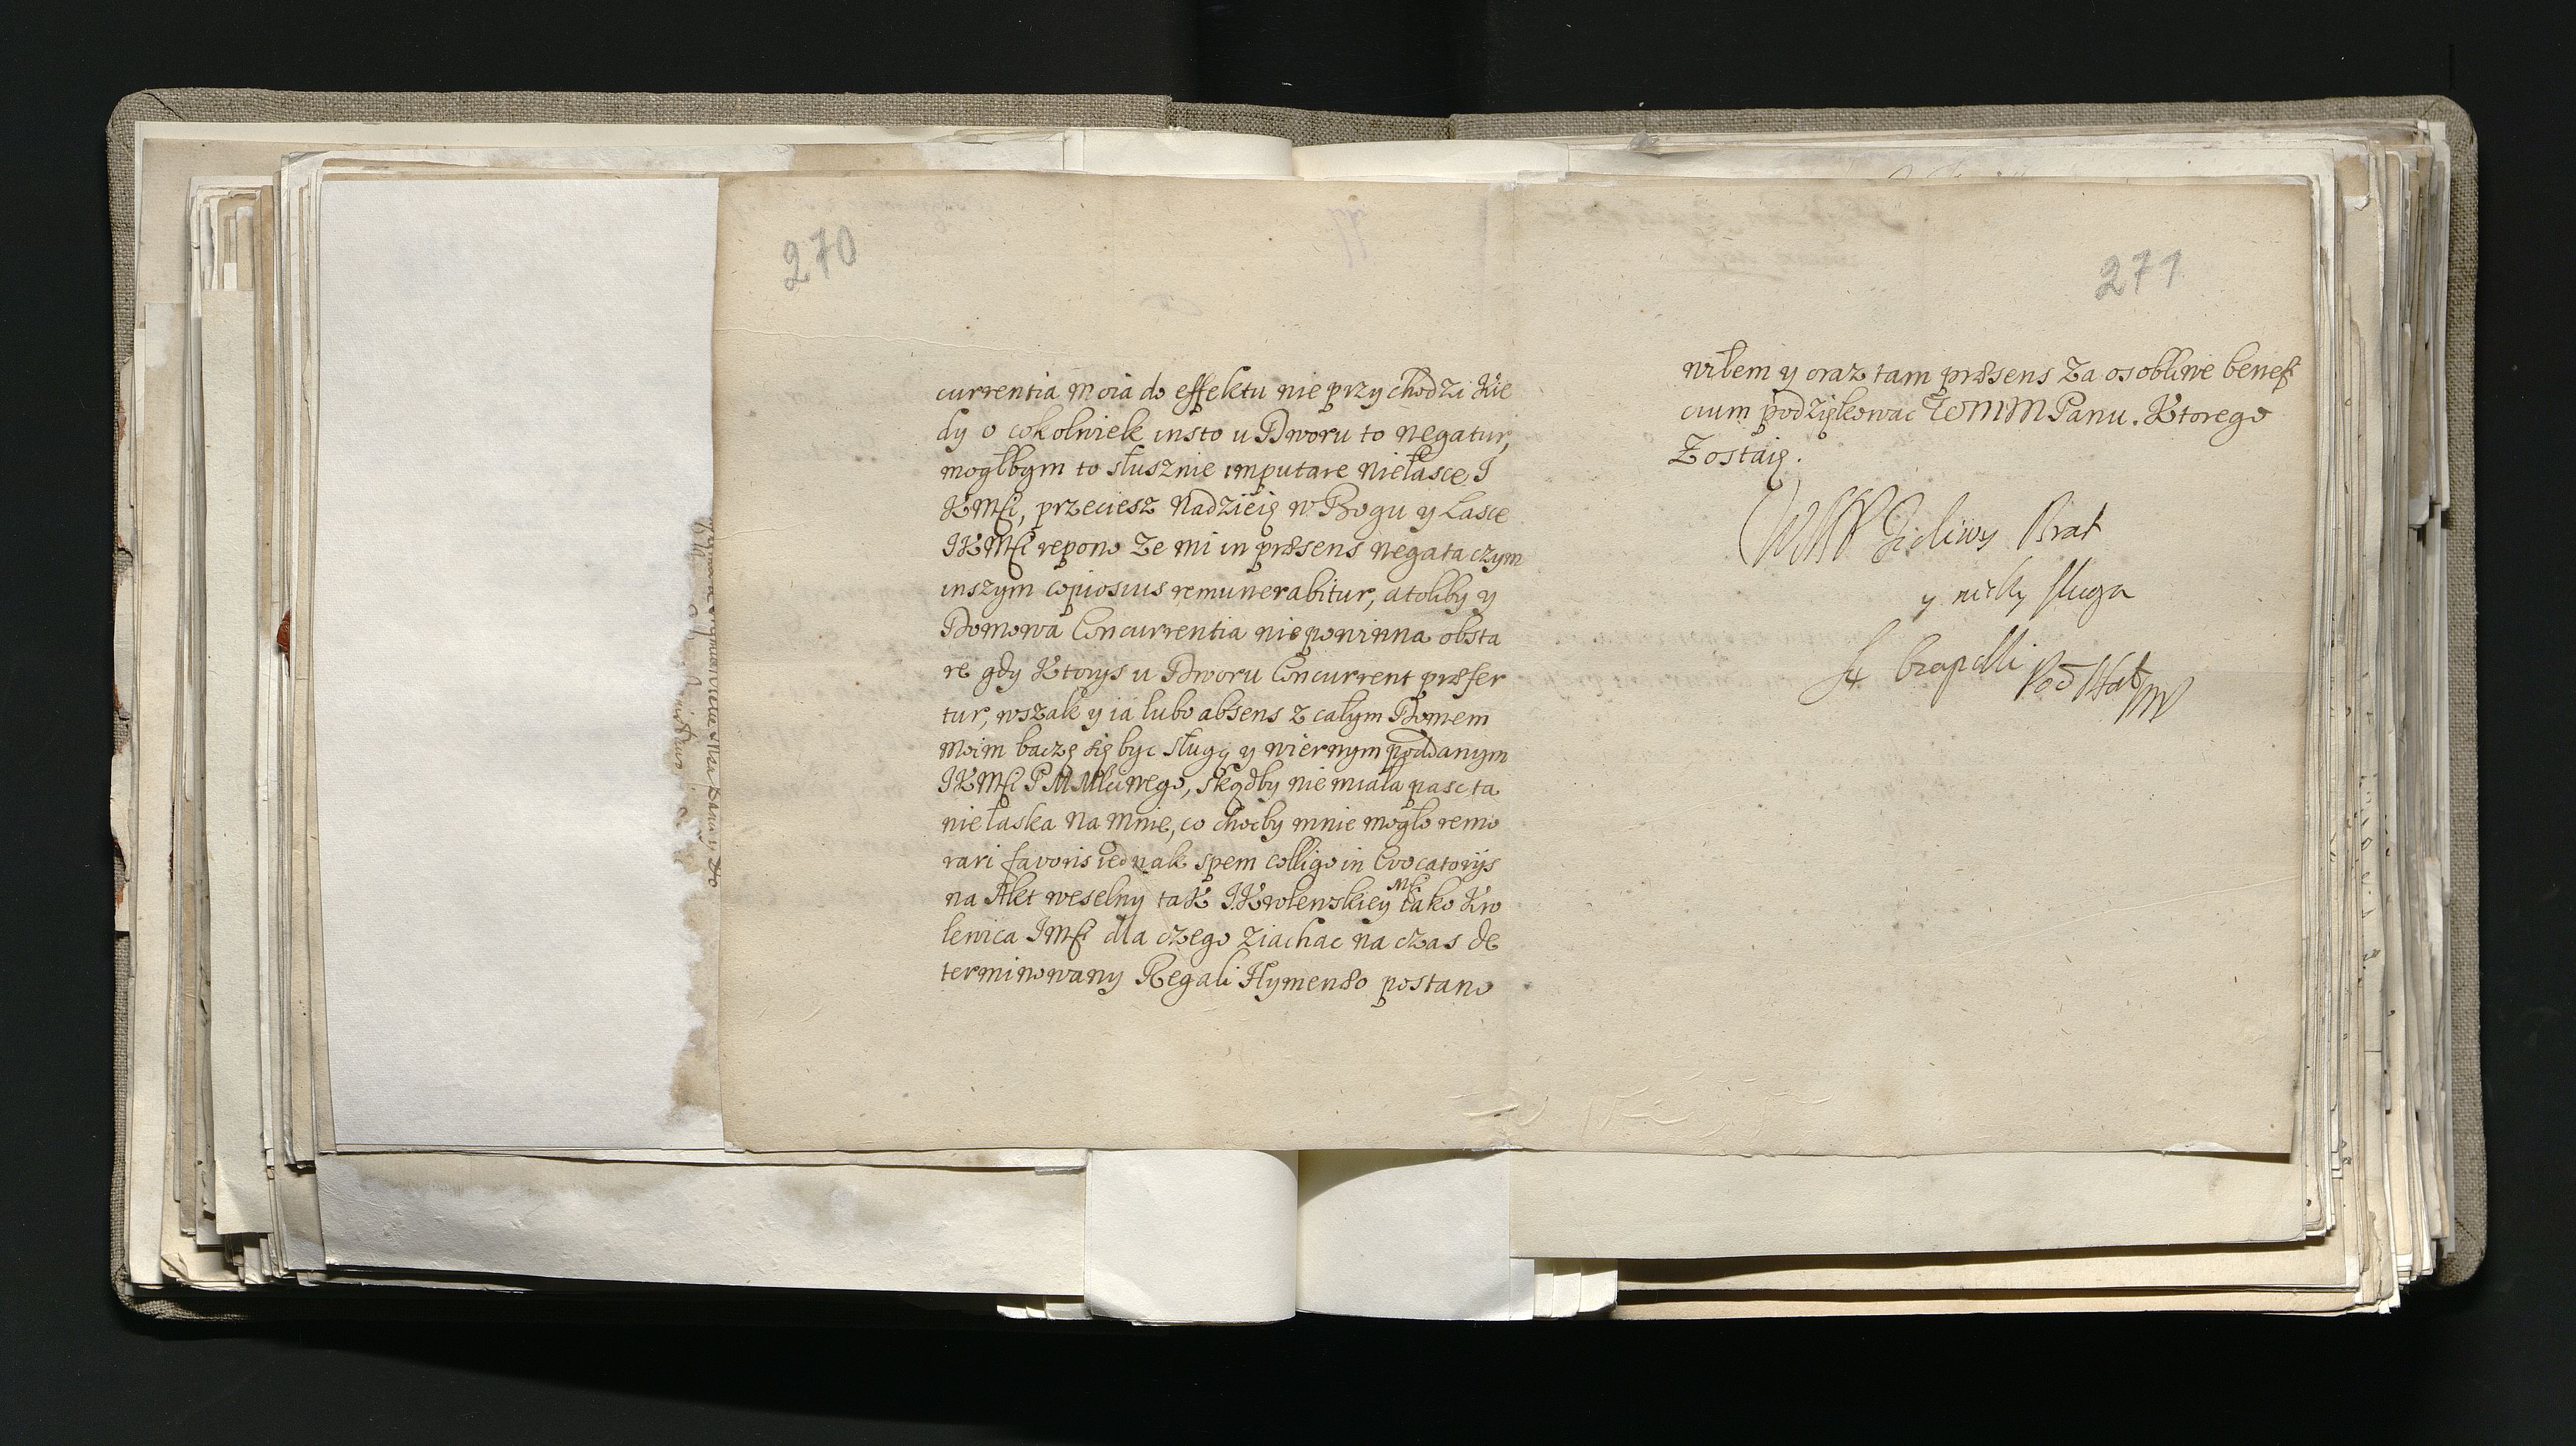 270
currentia moia do effektu nie przychodzi Kie
dy o cokolwiek insto u Dworu to negatur,
mogłbym to słusznie imputare niełasce I
KMści, przeciesz Nadzieię w Bogu y Lasce
IKMści repono Ze mi in præsens negata czym
inszym copiosius remunerabitur, atoliby y
Domowa Concurrentia nie powinna obsta
re gdy Ktorys u Dworu Concurrent præfer
tur, wszak y ia lubo absens z całym Domem
moim baczę się byc sługą y wiernym poddanym
IKMści P M Mściwego, skądby nie miała pasc ta
niełaska na mnie, co choćby mnie mogło remo
rari favoris iednak spem colligo in Evocatorijs
na Akt weselny tak IKrolewskiey Mści iako Kro
lewica IMści dla czego ziachac na czas de
terminowany Regali Hymenæo postano
271
wiłem y oraz tam præsens Za osobliwe benefi
cium podziękowac WMMPanu. Ktorego
Zostaię.
Życliwy Brat
y niski sługa